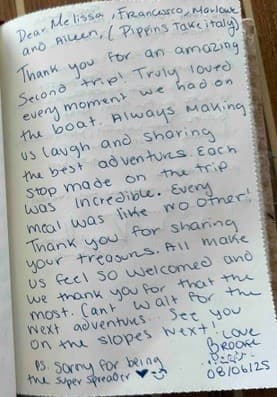 Dear Melissa, Francesco, Marlowe
and Aileen, (Pippins Take italy)
Thank you for an amazing
Second trip! Truly loved
every moment we had on
the boat. Always Making
us laugh and sharing
the best adventures. Each
stop made on the trip
was Incredible. Every
meal was like no other!
Thank you for sharing
your treasures. All make
us feel so welcomed and
we thank you for that the
most. Cant wait for the
next adventure... See you
on the slopes next! Love
Brooke
PS. Sorry for being
the super spreader
08/06/25